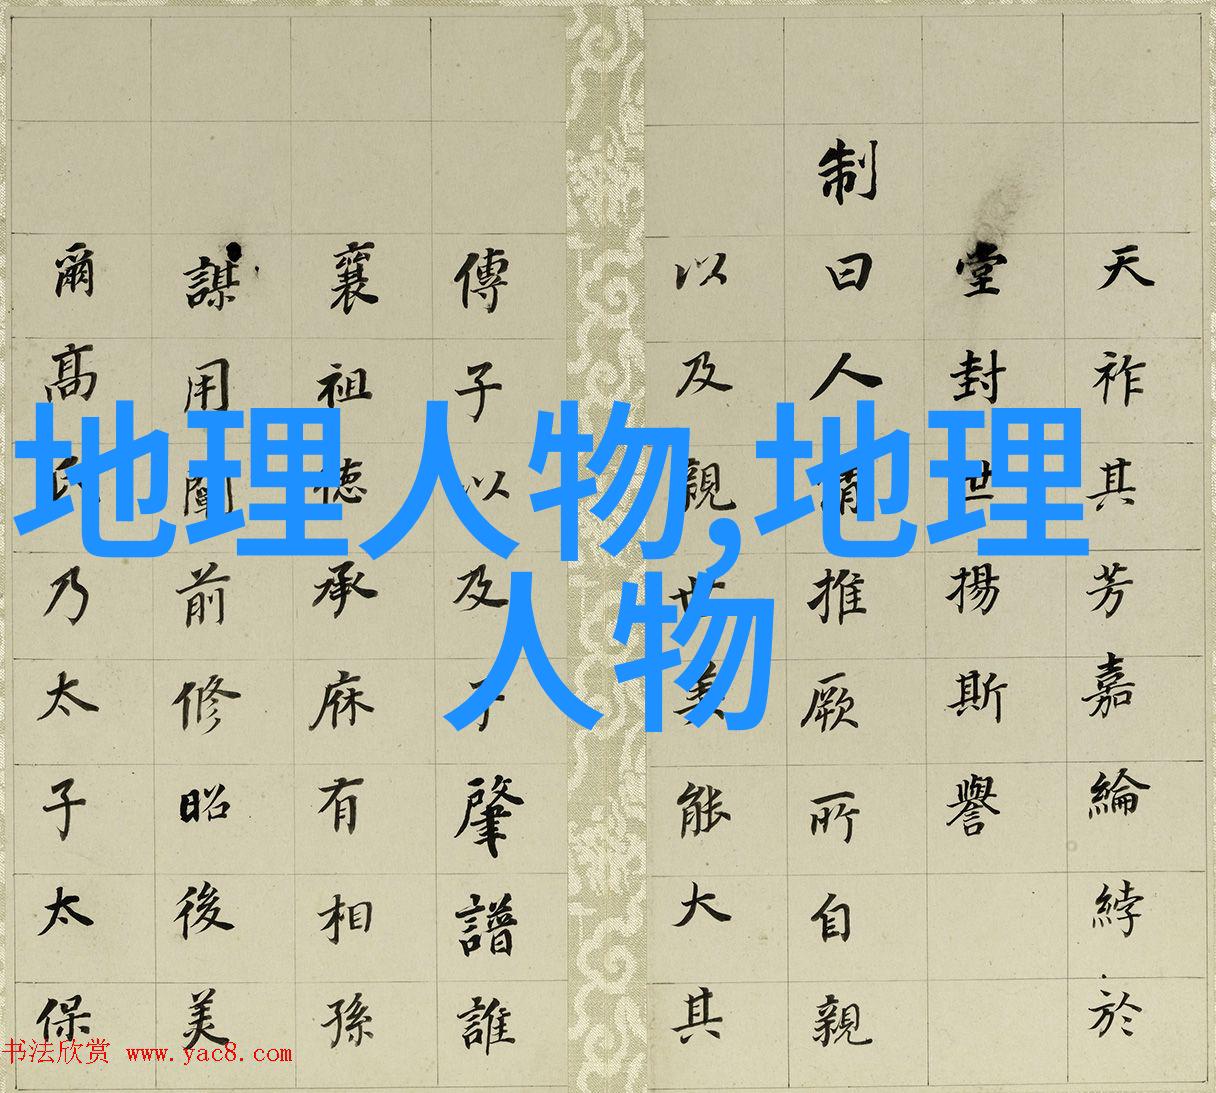 天祚其芳嘉綸綍於
堂封世揚斯譽
制曰人情推厥所自親
以及親世美能大其
傳子以及子肇譜誰
襄祖德承庥有相孫
謀用闡前修昭後美
爾高氏乃太子太保
地理人物,地理
人物
书法欣赏 www.yac8.com